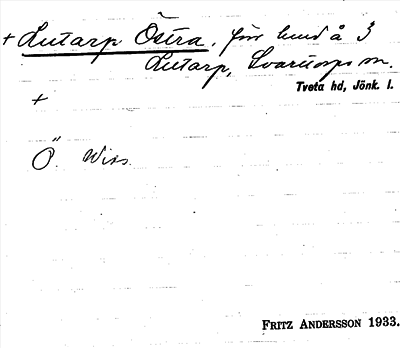 + Lutarp Östra, för hud å 3
Lutarp, Svarttorps sn.
Tveta hd, Jönk. l.
+
Ö.
FRITZ ANDERSSON 1933.